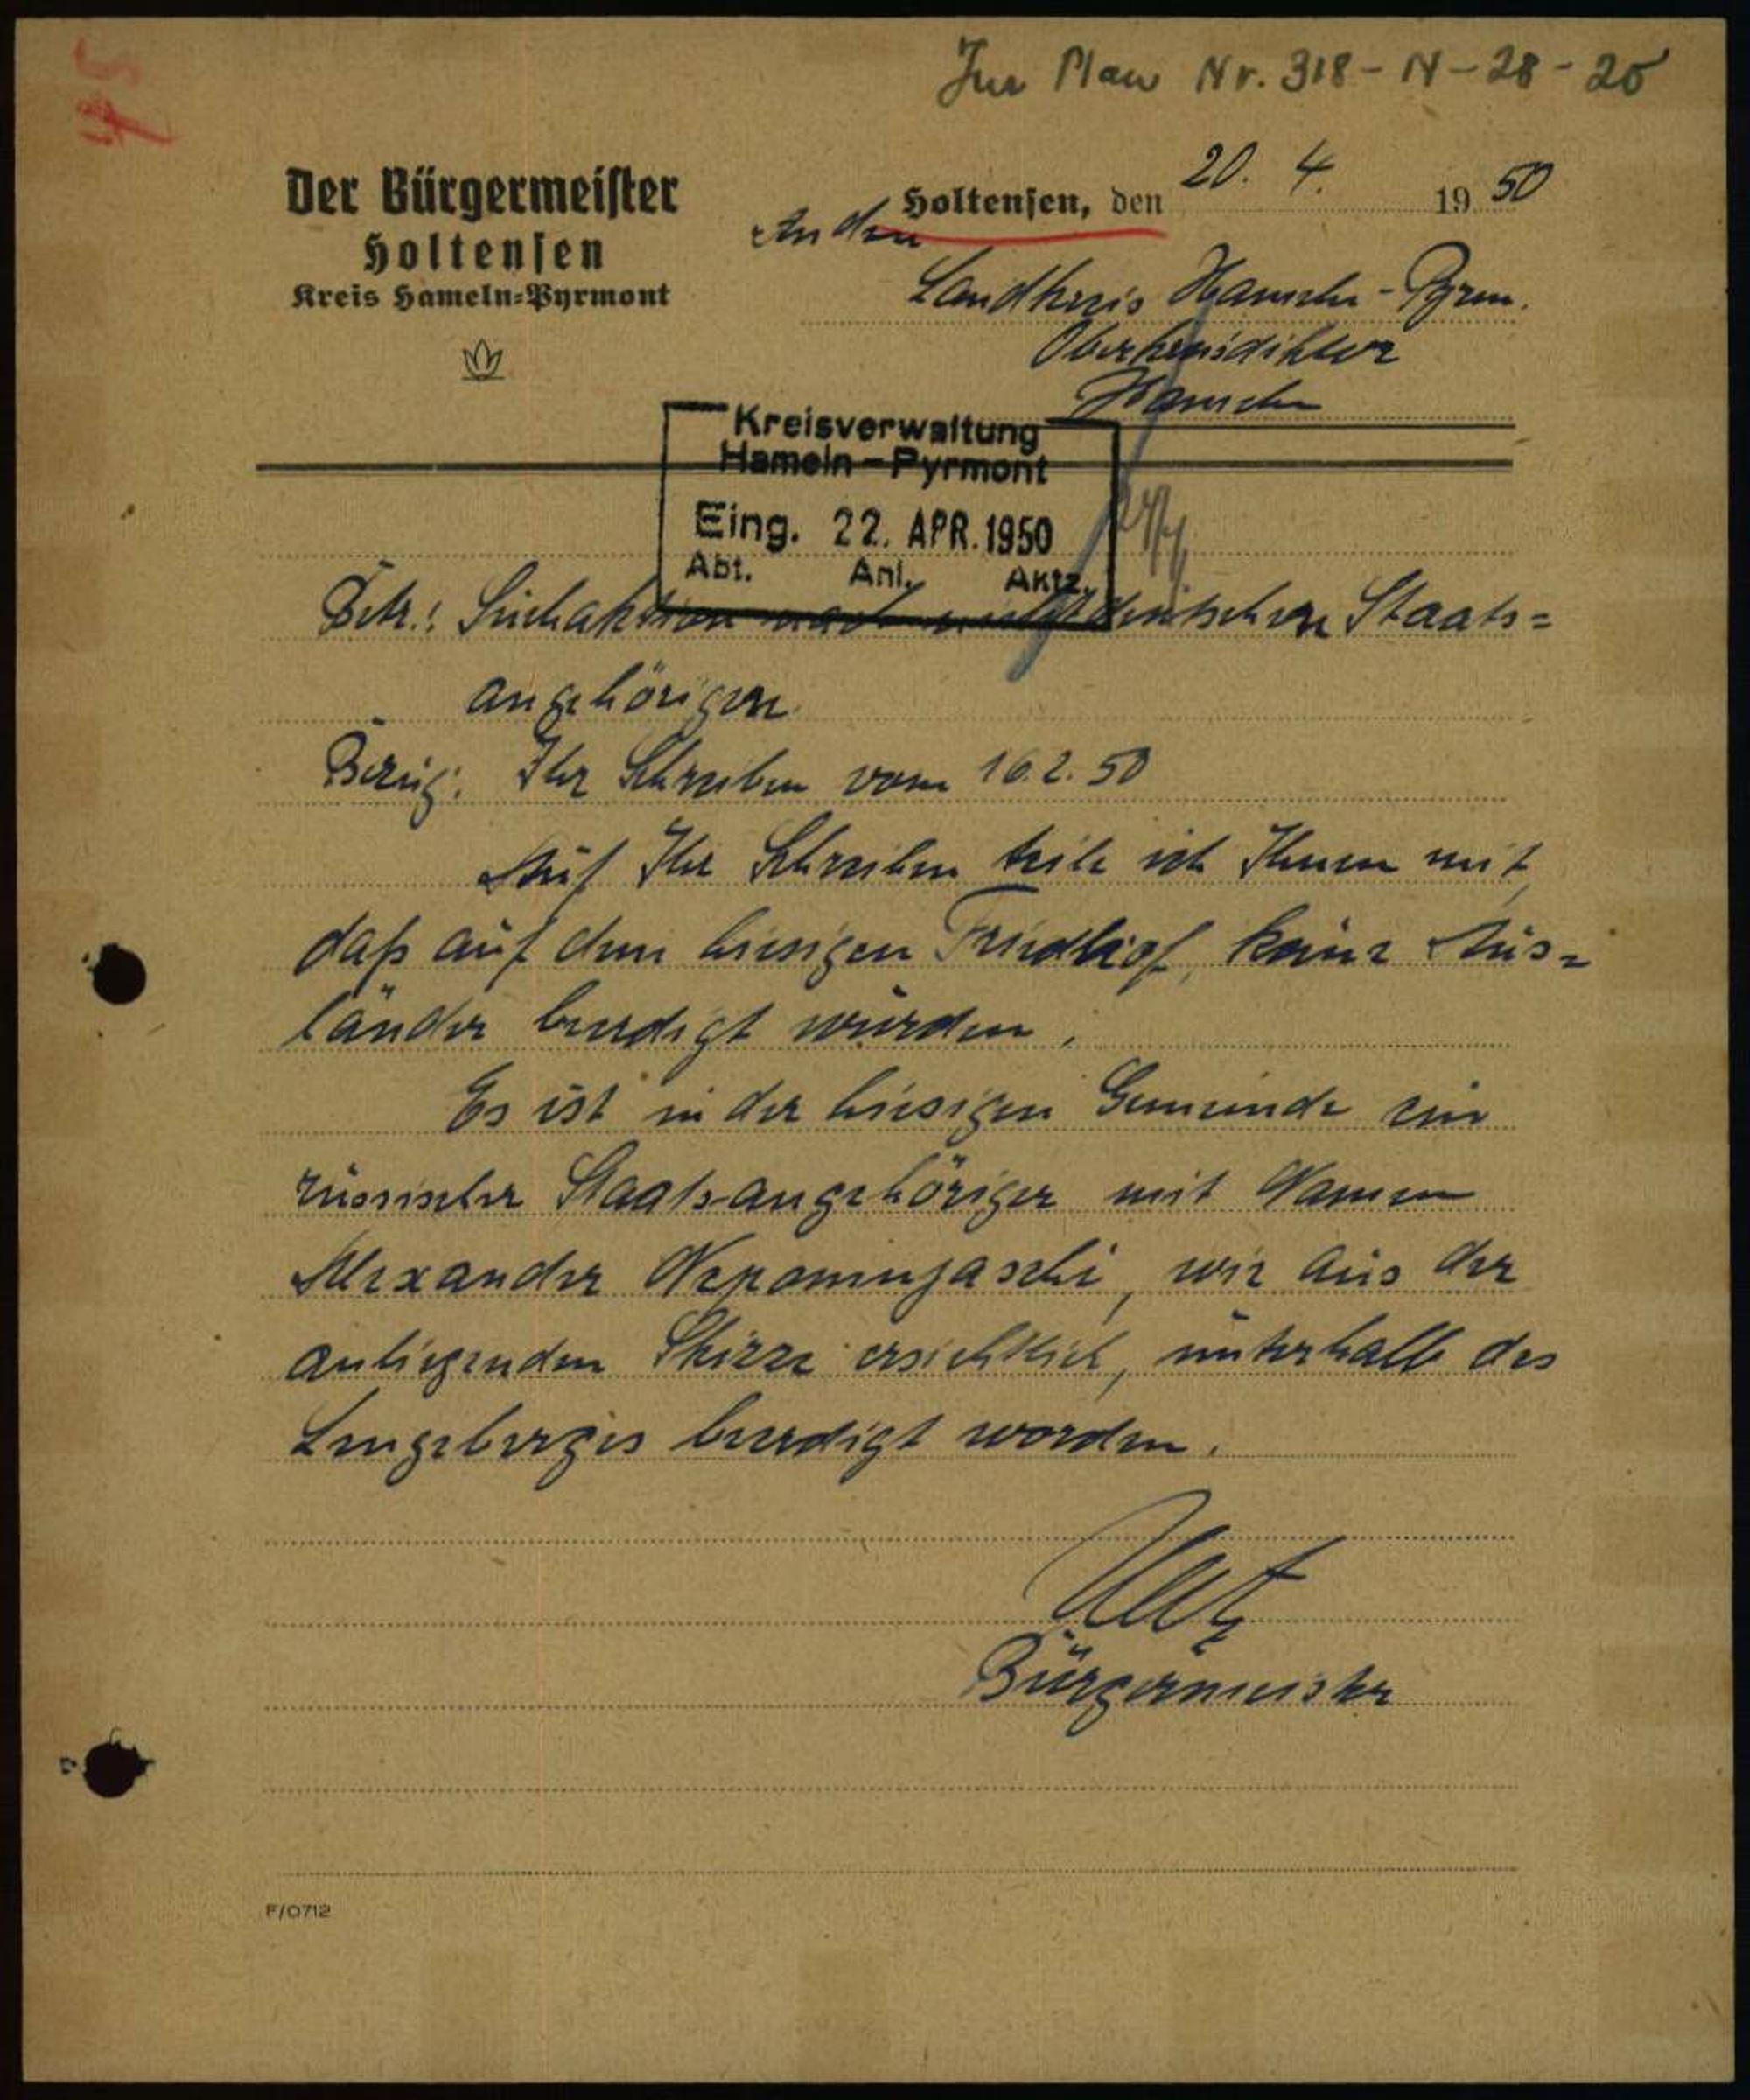 Zur Plan Nr. 318 - N - 28 - 20
Der Bürgermeister
Holtensen
Kreis Hameln-Pyrmont
Holtensen, den 20. 4. 1950
An den
Landkreis Hameln-Pyrm.
Oberkreisdirektor
Hameln
Kreisverwaltung
Hameln-Pyrmont
Eing. 22. APR. 1950
Abt. Anl. Aktz.
Betr.: Suchaktion nach nichtdeutschen Staats=
angehörigen.
Bezug: Ihr Schreiben vom 16.2.50
Auf Ihr Schreiben teile ich Ihnen mit,
daß auf dem hiesigen Friedhof, keine Aus=
länder beerdigt wurden.
Es ist in der hiesigen Gemeinde ein
russischer Staatsangehöriger mit Namen
Alexander Nepomnjaschi, wie aus der
anliegenden Skizze ersichtlich, unterhalb des
Lengeberges beerdigt worden.
Bürgermeister
F/0712